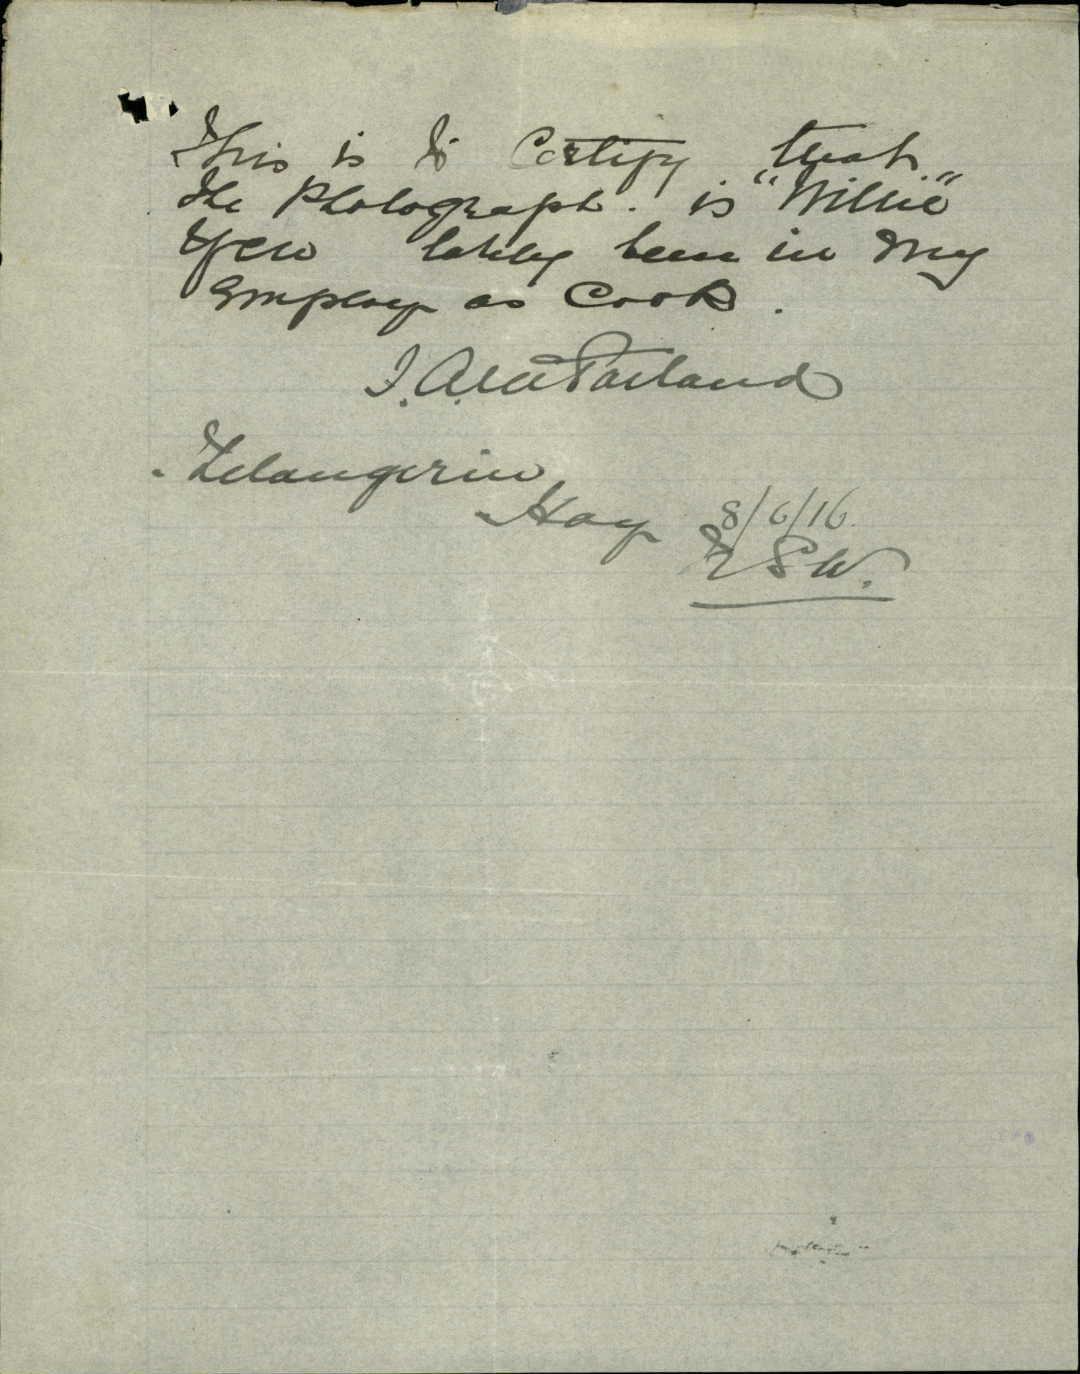 This is to Certify that
the Photograph. is "Willie"
Yew lately been in my
Employ as Cook.
J. A. McFarland
Telangerin
Hay 8/6/16
N S W.